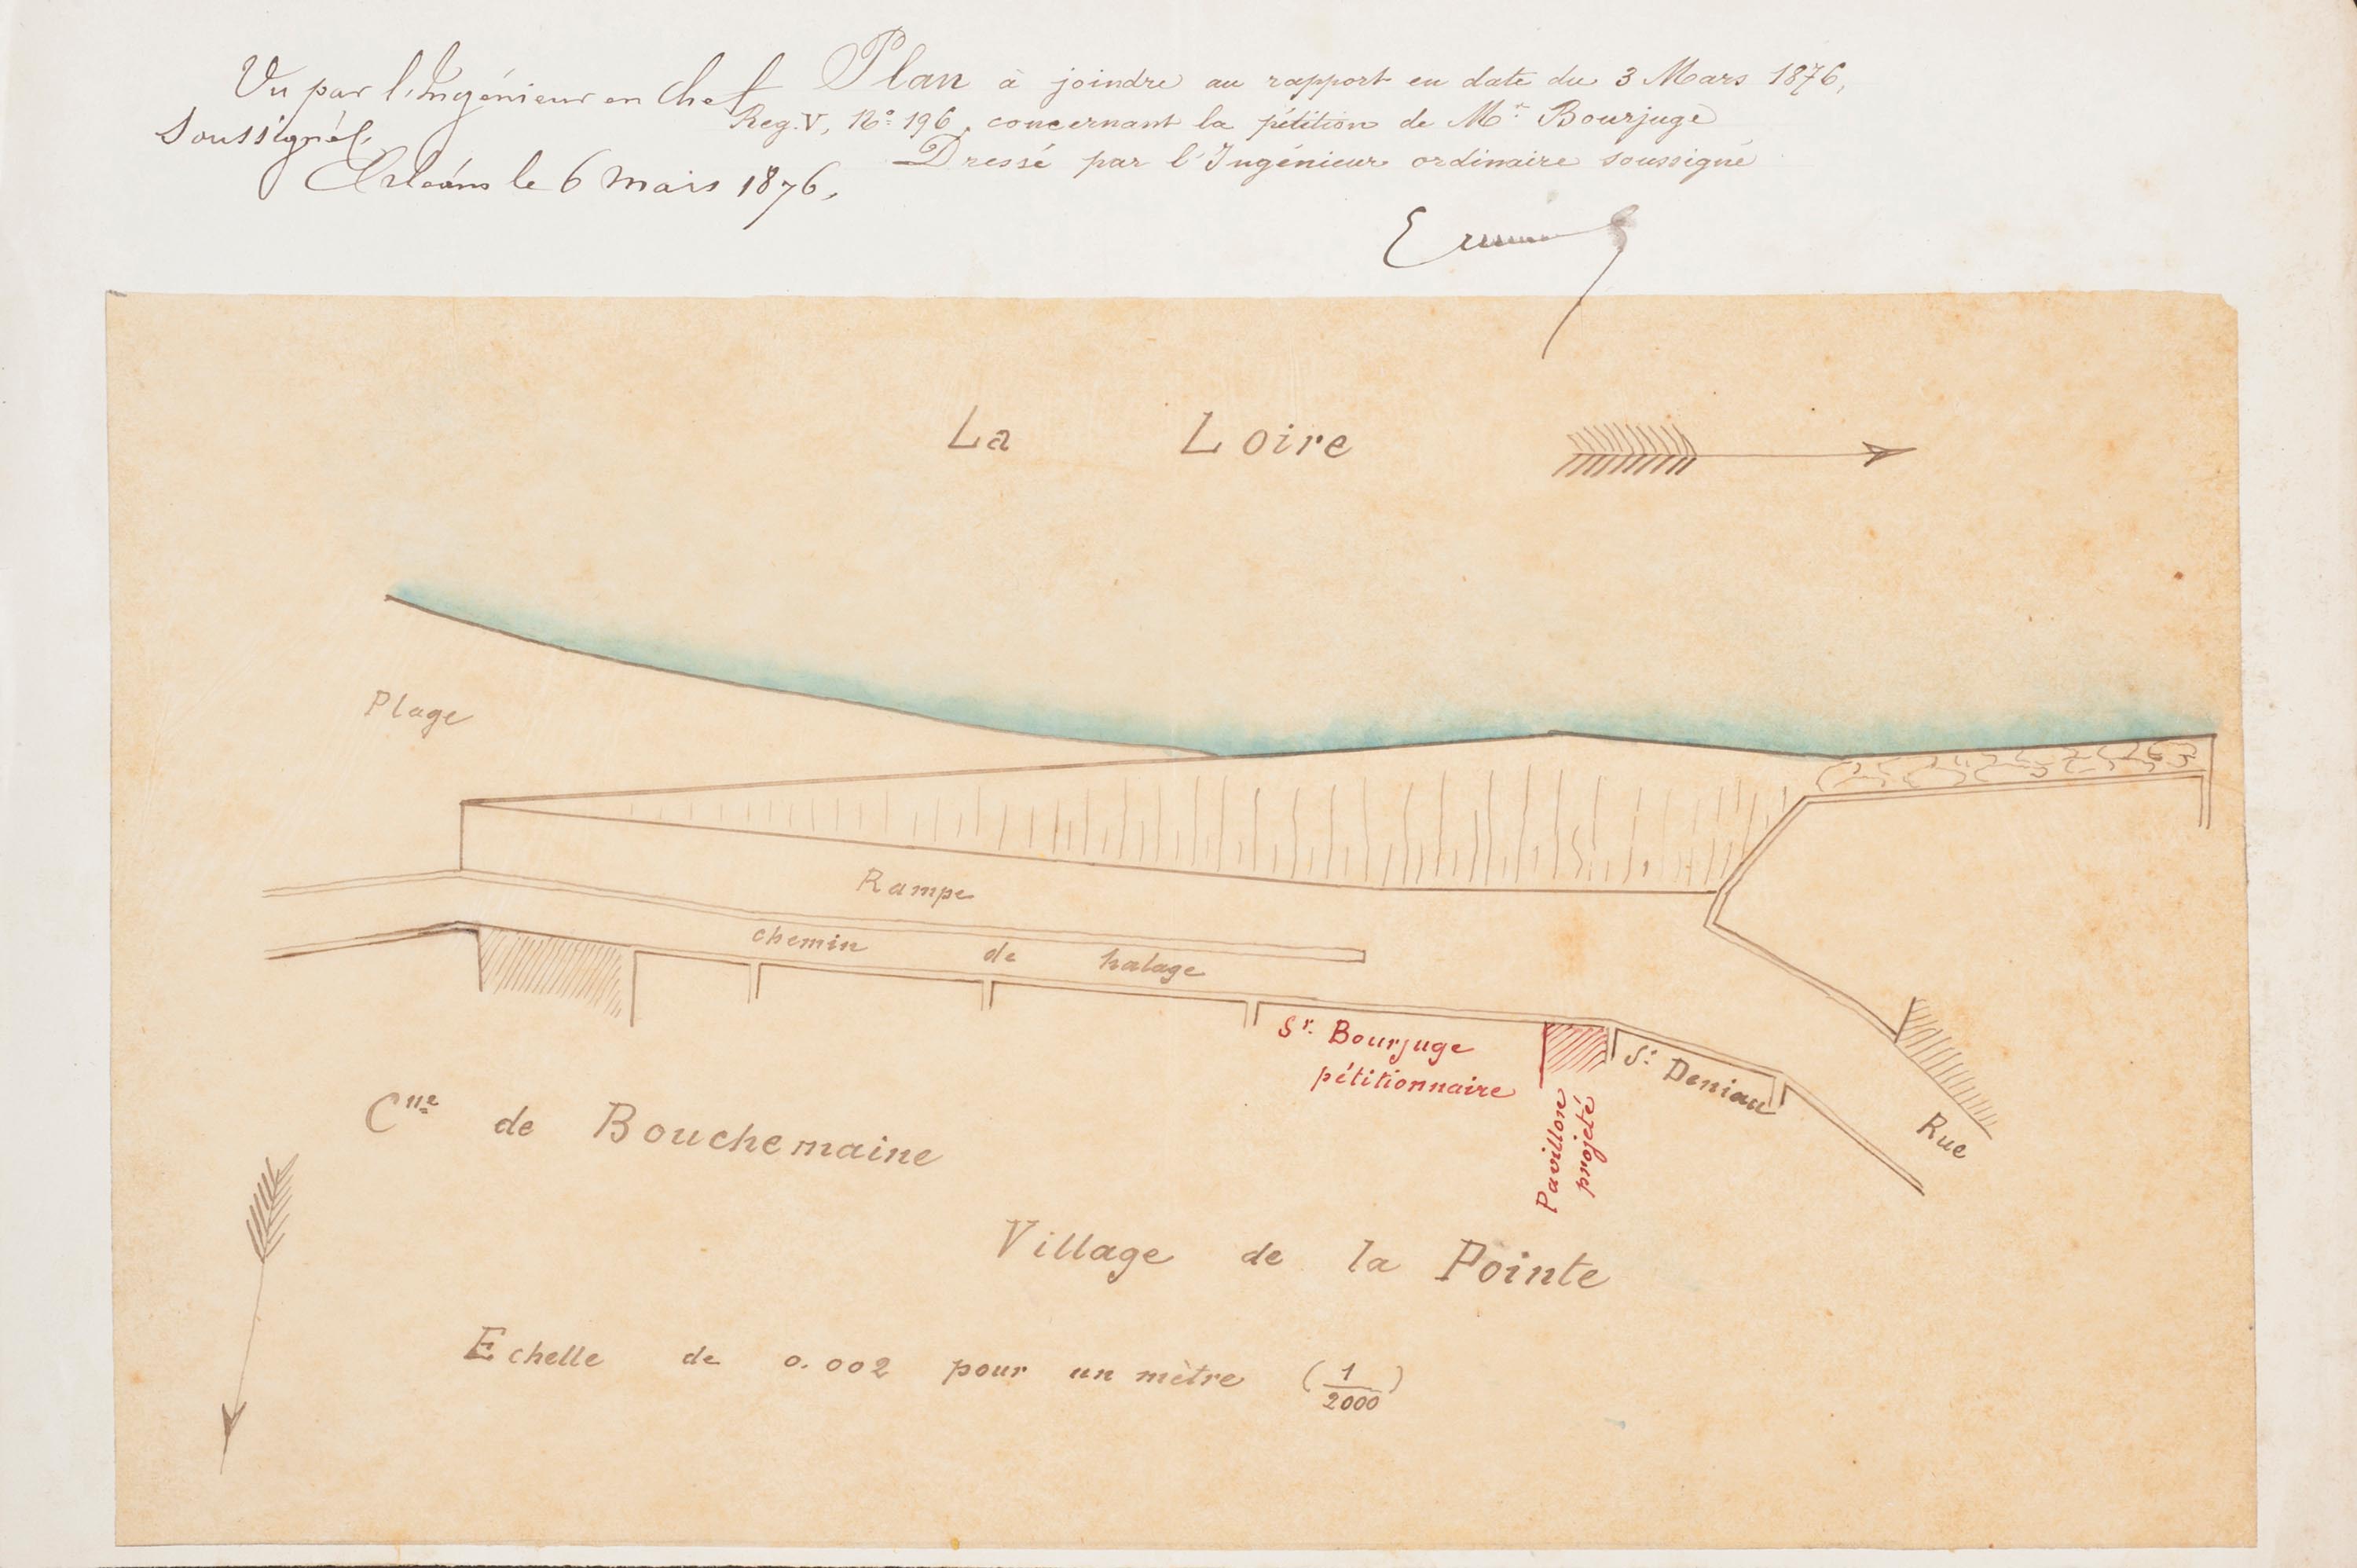 Vu par l'Ingénieur en Chef
soussigné,
Orléans le 6 mars 1876,
Plan à joindre au rapport en date du 3 Mars 1876,
Reg. V, N° 196, concernant la pétition de Mr Bourjuge
Dressé par l'Ingénieur ordinaire soussigné
La Loire
Plage
Rampe
chemin de halage
Sr. Bourjuge
pétitionnaire
Pavillon
projeté
Sr Deniau
Rue
Cne de Bouchemaine
Village de la Pointe
Echelle de 0.002 pour un mètre (1/2000)